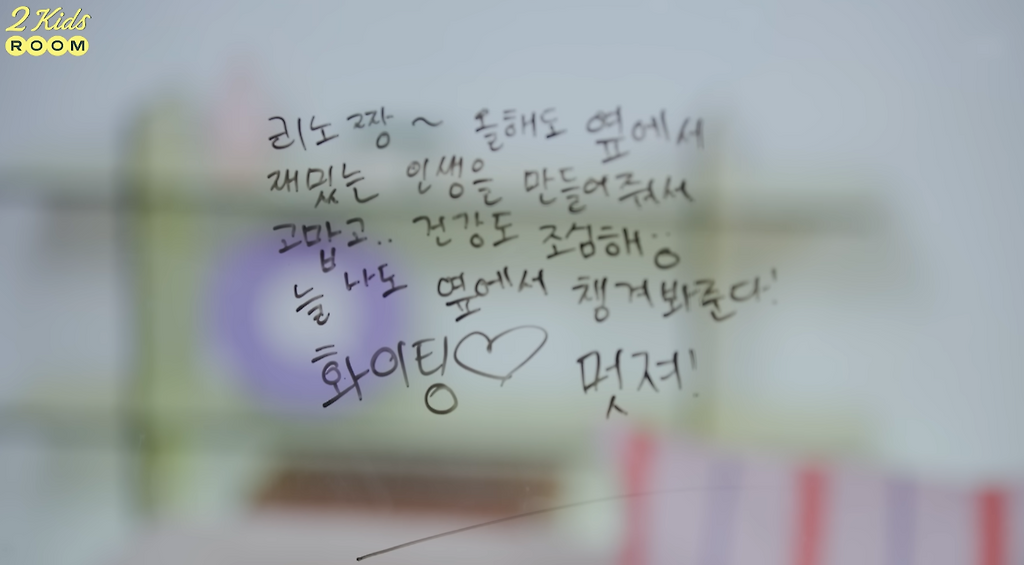 2 Kids
ROOM
리노 짱 ~ 올해도 옆에서
재밌는 인생을 만들어줘서
고맙고.. 건강도 조심해용
늘 나도 옆에서 챙겨봐준다!
화이팅♡ 멋져!